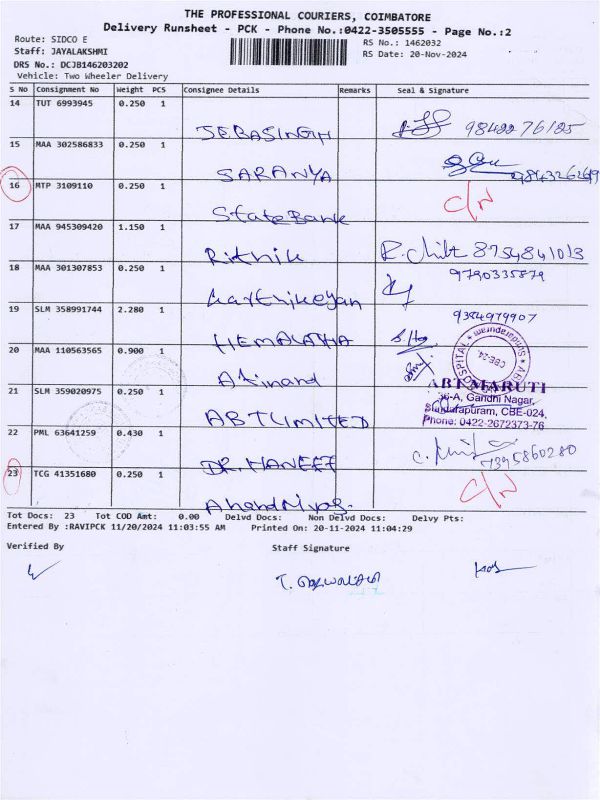 THE PROFESSIONAL COURIERS, COIMBATORE
Delivery Runsheet - PCK - Phone No.:0422-3505555 - Page No.:2
Route: SIDCO E
RS No.: 1462032
Staff: JAYALAKSHMI
RS Date: 20-Nov-2024
DRS No.: DCJB146203202
Vehicle: Two Wheeler Delivery
S No Consignment No Weight PCS Consignee Details Remarks Seal & Signature
14 TUT 6993945 0.250 1
JEBASINGH 9842276185
15 MAA 302586833 0.250 1
SARANYA
16 MTP 3109110 0.250 1
State Bank C/N
17 MAA 945309420 1.150 1
Rithik 8754841013
18 MAA 301307853 0.250 1 9790335879
Karthikeyan
19 SLM 358991744 2.280 1 9384979907
HEMALATHA
20 MAA 110563565 0.900 1
ABT MARUTI
36-A, Gandhi Nagar,
21 SLM 359020975 0.250 1
Sundarapuram, CBE-024,
ABT LIMITED Phone: 0422-2672373-76
22 PML 63641259 0.430 1
DR. HANEEF 7395860280
23 TCG 41351680 0.250 1
C/N
Tot Docs: 23 Tot COD Amt: 0.00 Delvd Docs: Non Delvd Docs: Delvy Pts:
Entered By :RAVIPCK 11/20/2024 11:03:55 AM Printed On: 20-11-2024 11:04:29
Verified By Staff Signature